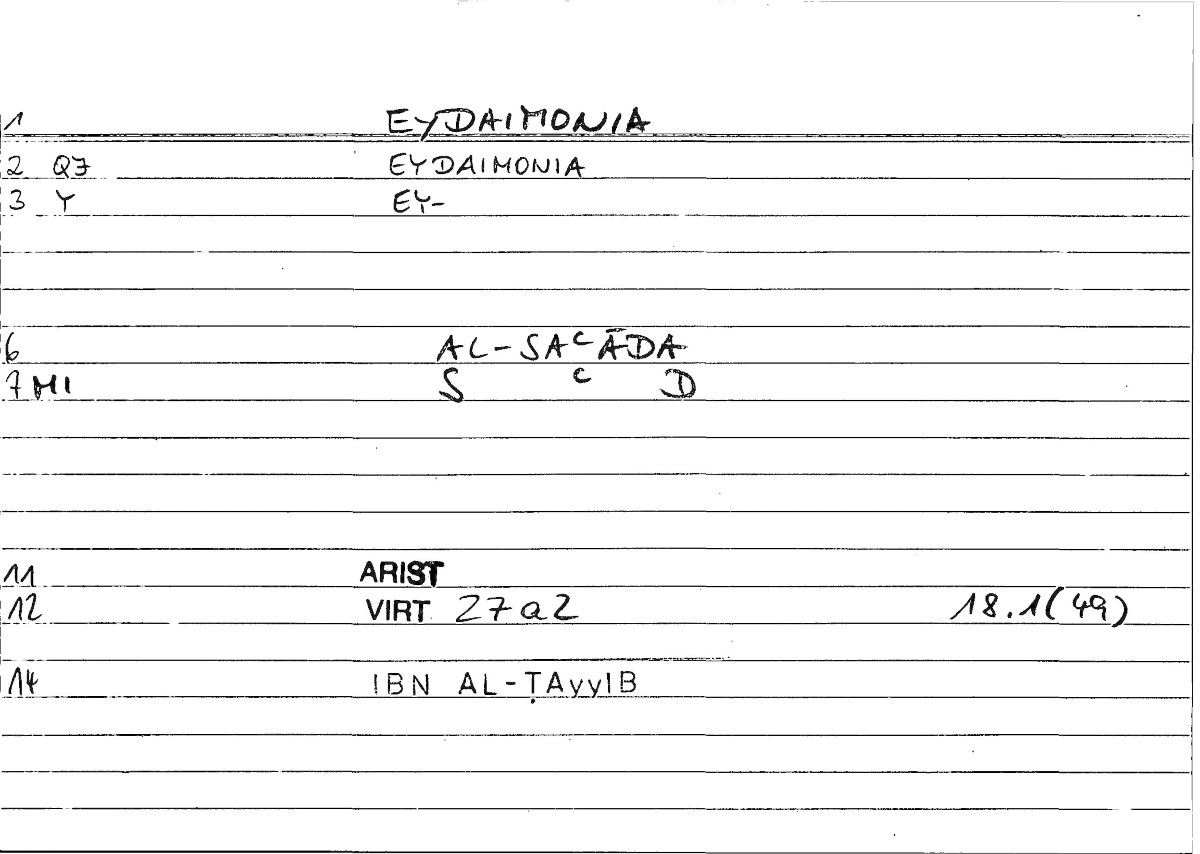 1 EYDAIMONIA
2 QZ EYDAIMONIA
3 Y EY-
6 AL-SAᶜĀDA
7 MI S ᶜ D
11 ARIST
12 VIRT 27a2 18.1(49)
14 IBN AL-ṬAyyIB